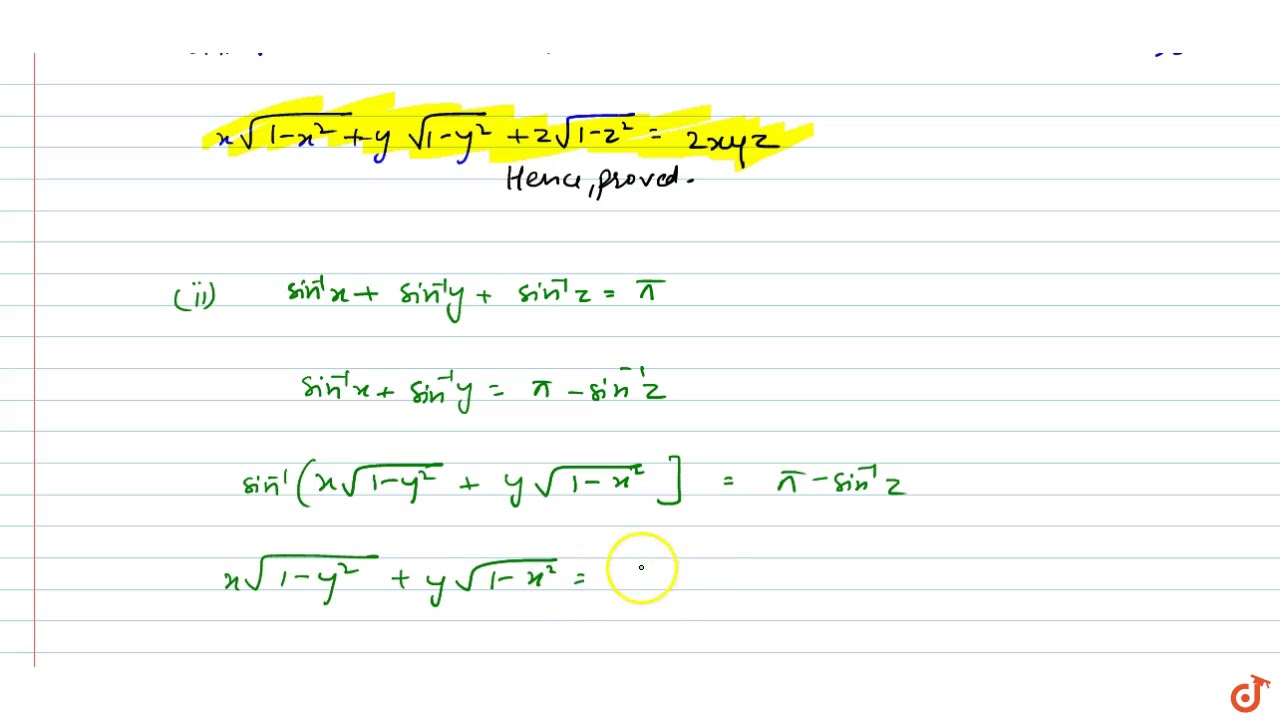 x√(1-x²) + y √(1-y²) + z√(1-z²) = 2xyz
Hence, proved.
(ii) sin⁻¹x + sin⁻¹y + sin⁻¹z = π
sin⁻¹x + sin⁻¹y = π - sin⁻¹z
sin⁻¹(x√(1-y²) + y√(1-x²)] = π - sin⁻¹z
x√(1-y²) + y√(1-x²) =